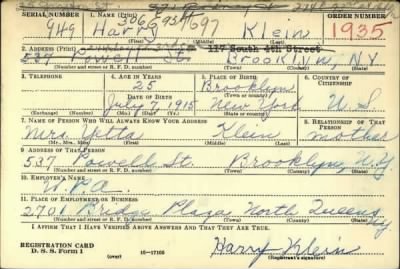 SERIAL NUMBER 1. NAME (Print) ORDER NUMBER
949 Harry Klein 1935
(First) (Middle) (Last)
2. ADDRESS (Print) 117 South 4th Street
537 Powell St. BROOKLYN, N.Y
(Number and street or R. F. D. number) (Town) (County) (State)
3. TELEPHONE 4. AGE IN YEARS 5. PLACE OF BIRTH 6. COUNTRY OF CITIZENSHIP
25 Brooklyn
DATE OF BIRTH (Town or county)
July 7, 1915 New York U. S.
(Exchange) (Number) (Mo.) (Day) (Yr.) (State or country)
7. NAME OF PERSON WHO WILL ALWAYS KNOW YOUR ADDRESS 8. RELATIONSHIP OF THAT PERSON
Mrs. Klein mother
(Mr., Mrs., Miss) (First) (Middle) (Last)
9. ADDRESS OF THAT PERSON
537 Powell St. Brooklyn, N.Y.
(Number and street or R. F. D. number) (Town) (County) (State)
10. EMPLOYER'S NAME
W.P.A.
11. PLACE OF EMPLOYMENT OR BUSINESS
2701 Bridge Plaza North Queens
(Number and street or R. F. D. number) (Town) (County) (State)
I AFFIRM THAT I HAVE VERIFIED ABOVE ANSWERS AND THAT THEY ARE TRUE.
REGISTRATION CARD
D. S. S. Form 1 (over) 16-17105 Harry Klein
(Registrant's signature)